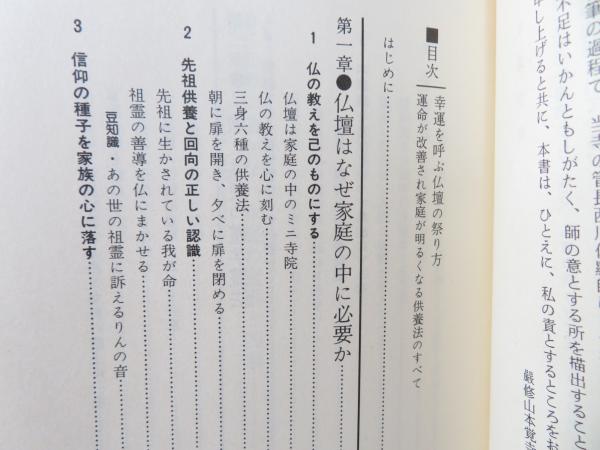 筆の過程で
不足はいかんともしがたく、師の意とする所を描出すること
申し上げると共に、本書は、ひとえに、私の責とするところをお
嚴修山本覚寺
■目次
幸運を呼ぶ仏壇の祭り方
運命が改善され家庭が明るくなる供養法のすべて
はじめに
第一章●仏壇はなぜ家庭の中に必要か
1 仏の教えを己のものにする
仏壇は家庭の中のミニ寺院
仏の教えを心に刻む
三身六種の供養法
朝に扉を開き、夕べに扉を閉める
2 先祖供養と回向の正しい認識
先祖に生かされている我が命
祖霊の善導を仏にまかせる
豆知識・あの世の祖霊に訴えるりんの音
3 信仰の種子を家族の心に落す